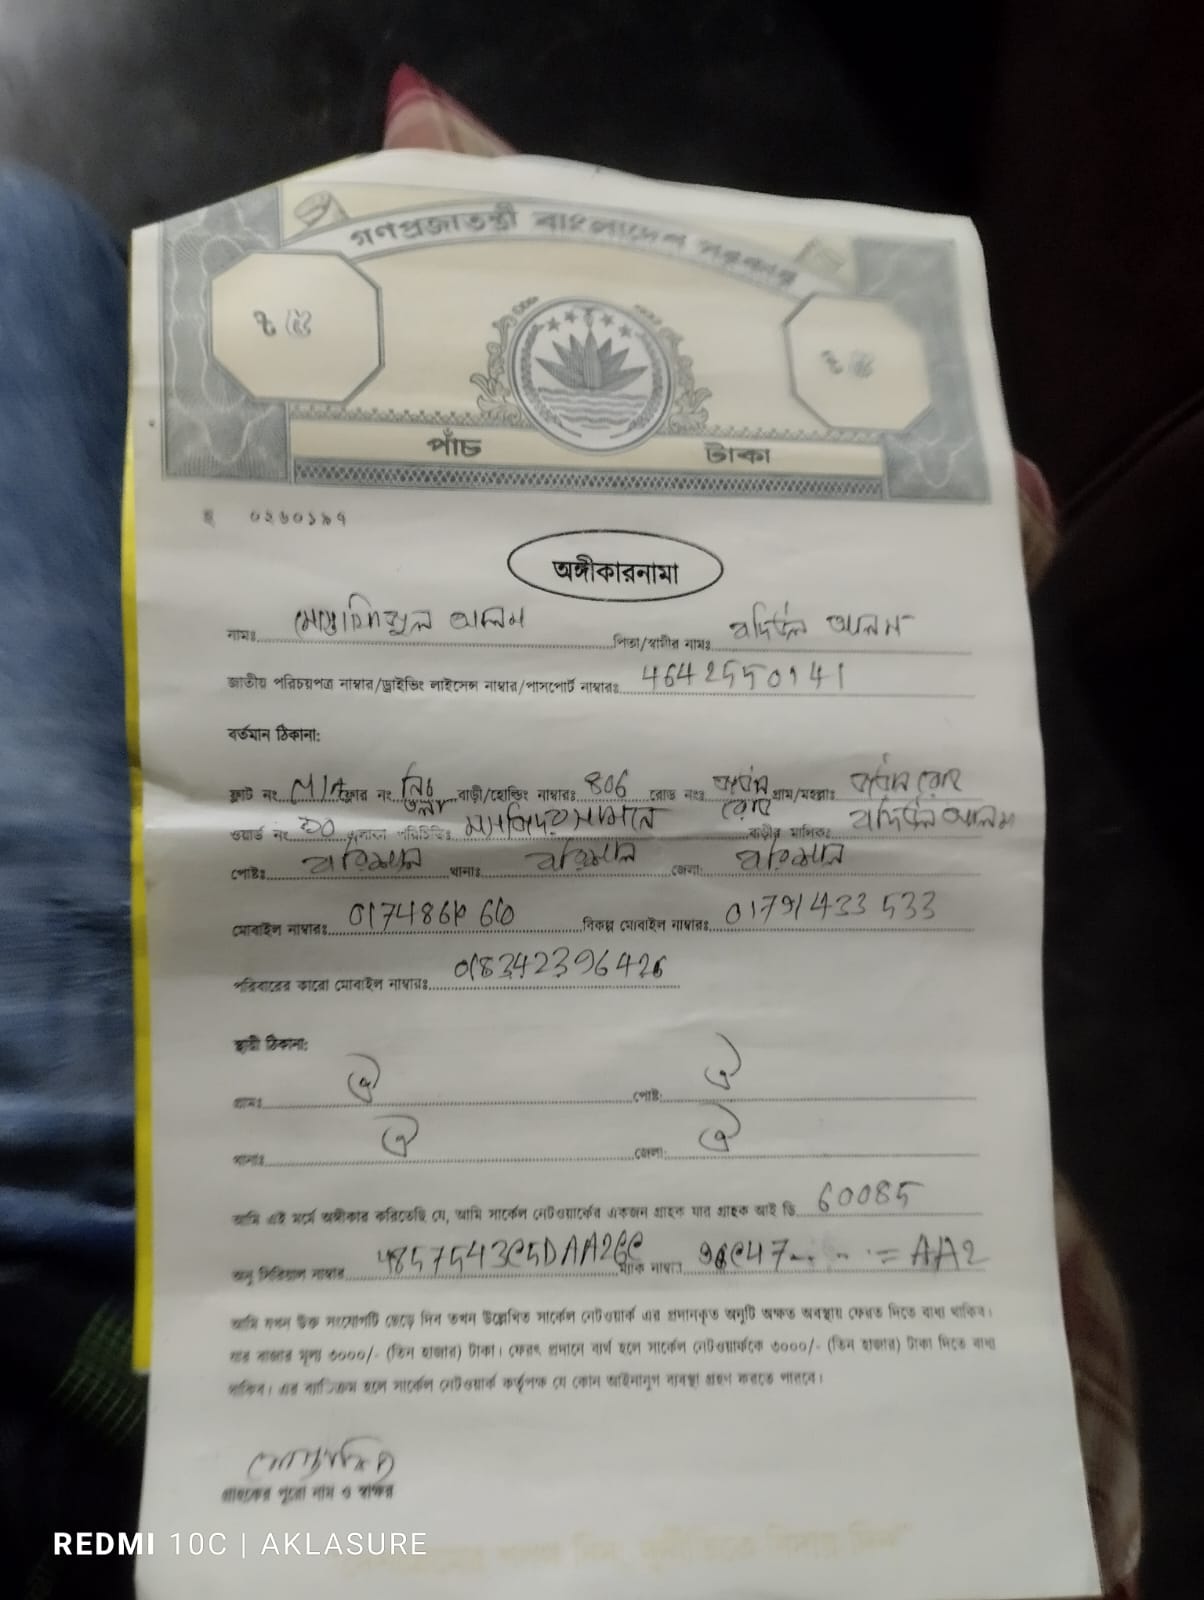 গণপ্রজাতন্ত্রী বাংলাদেশ সরকার
৳ ৫ ৳ ৫
পাঁচ টাকা
০২৬০১৯৭
অঙ্গীকারনামা
নামঃ আলম পিতা/স্বামীর নামঃ বদিউল আলম
জাতীয় পরিচয়পত্র নাম্বার/ড্রাইভিং লাইসেন্স নাম্বার/পাসপোর্ট নাম্বারঃ
বর্তমান ঠিকানা:
ফ্লাট নং N/A ফ্লোর নং নিচ তলা বাড়ী/হোল্ডিং নাম্বারঃ 806 রোড নংঃ রোড গ্রাম/মহল্লাঃ রোড
ওয়ার্ড নং এলাকা পরিচিতিঃ মসজিদের সামনে বাড়ীর মালিকঃ বদিউল আলম
পোষ্টঃ বরিশাল থানাঃ বরিশাল জেলা: বরিশাল
মোবাইল নাম্বারঃ বিকল্প মোবাইল নাম্বারঃ 01791433533
পরিবারের কারো মোবাইল নাম্বারঃ
স্থায়ী ঠিকানা:
গ্রামঃ ঐ পোষ্ট: ঐ
থানাঃ ঐ জেলা: ঐ
আমি এই মর্মে অঙ্গীকার করিতেছি যে, আমি সার্কেল নেটওয়ার্কের একজন গ্রাহক যার গ্রাহক আই ডি 60085
অনু সিরিয়াল নাম্বার ম্যাক নাম্বার = AA2
আমি যখন উক্ত সংযোগটি ছেড়ে দিব তখন উল্লেখিত সার্কেল নেটওয়ার্ক এর প্রদানকৃত অনুটি অক্ষত অবস্থায় ফেরত দিতে বাধ্য থাকিব।
যার বাজার মূল্য ৩০০০/- (তিন হাজার) টাকা। ফেরৎ প্রদানে ব্যর্থ হলে সার্কেল নেটওয়ার্ককে ৩০০০/- (তিন হাজার) টাকা দিতে বাধ্য
থাকিব। এর ব্যতিক্রম হলে সার্কেল নেটওয়ার্ক কর্তৃপক্ষ যে কোন আইনানুগ ব্যবস্থা গ্রহণ করতে পারবে।
গ্রাহকের পুরো নাম ও স্বাক্ষর
REDMI 10C | AKLASURE